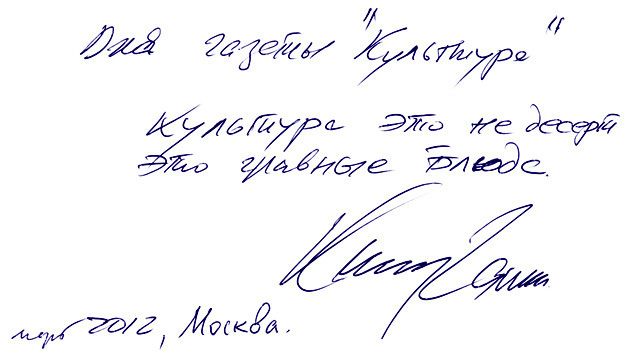 Для газеты "Культура"
Культура это не десерт
это главные блюда.
март 2012, Москва.